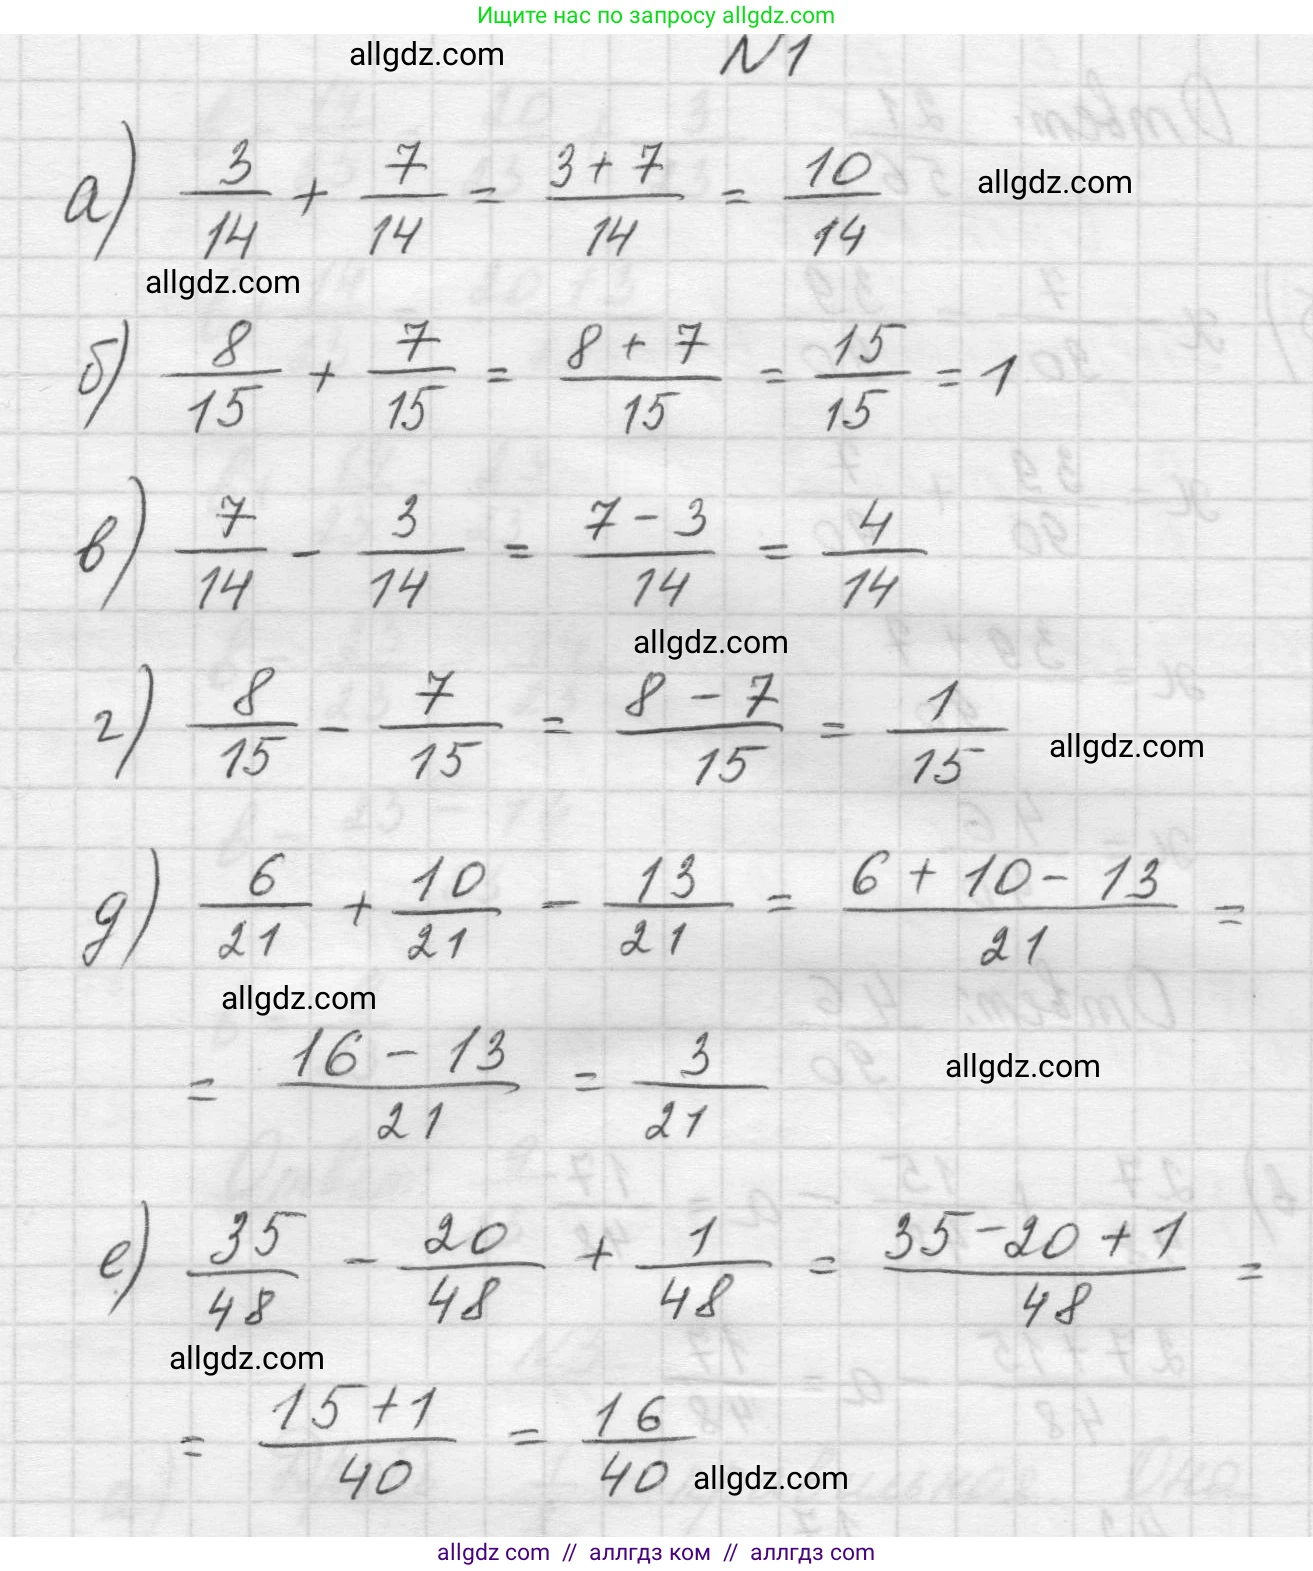 Ищите нас по запросу allgdz.com
allgdz.com
N1
а) 3/14 + 7/14 = (3 + 7)/14 = 10/14
allgdz.com
allgdz.com
б) 8/15 + 7/15 = (8 + 7)/15 = 15/15 = 1
в) 7/14 - 3/14 = (7 - 3)/14 = 4/14
allgdz.com
г) 8/15 - 7/15 = (8 - 7)/15 = 1/15
allgdz.com
д) 6/21 + 10/21 - 13/21 = (6 + 10 - 13)/21 =
allgdz.com
= (16 - 13)/21 = 3/21
allgdz.com
е) 35/48 - 20/48 + 1/48 = (35 - 20 + 1)/48 =
allgdz.com
= (15 + 1)/40 = 16/40
allgdz.com
allgdz com // аллгдз ком // аллгтдз com